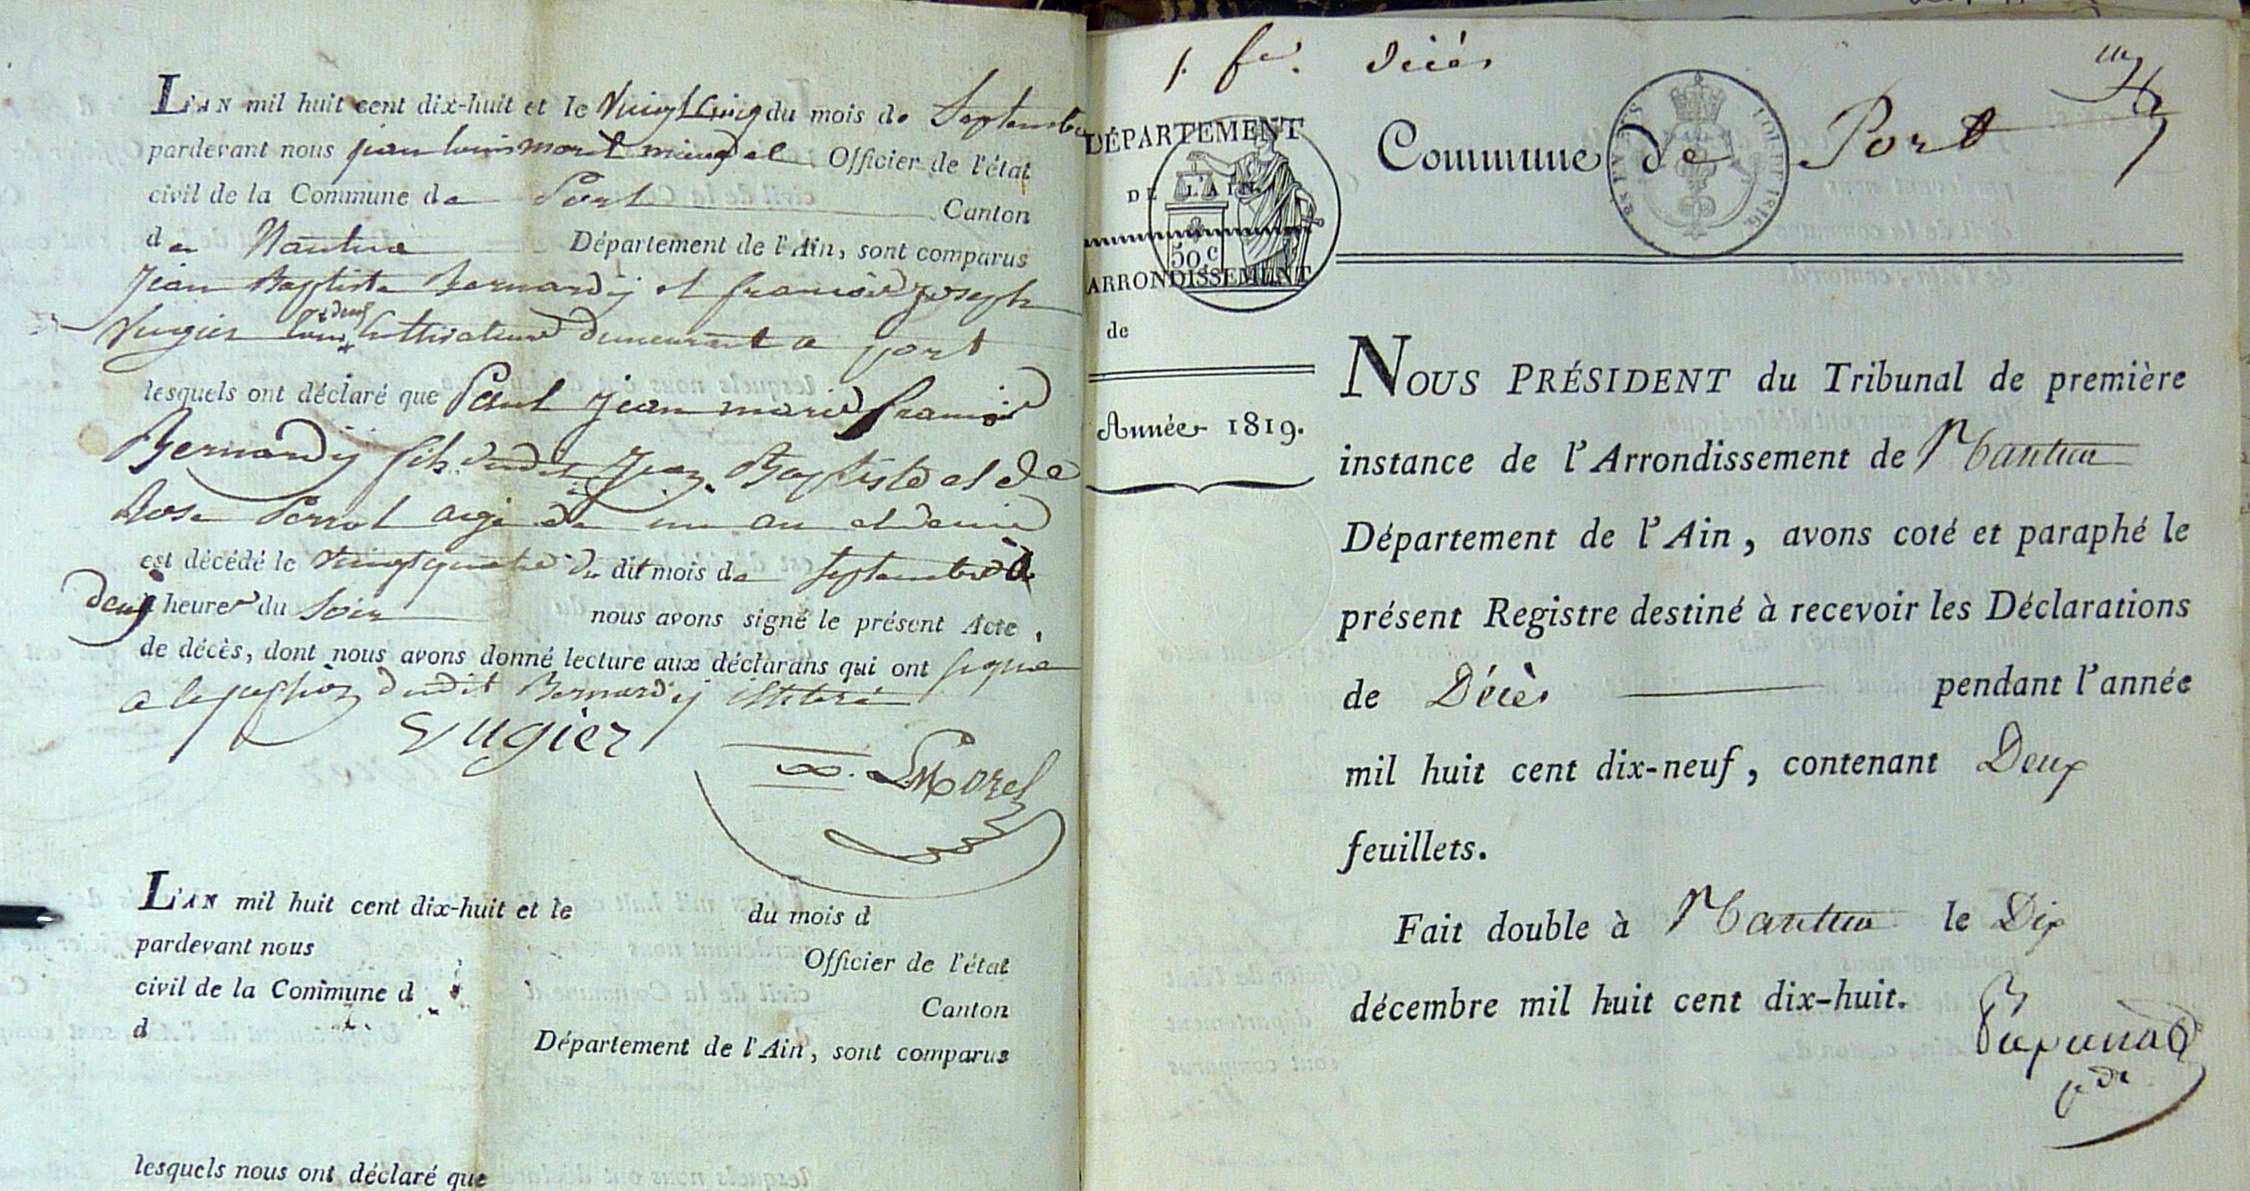 L'AN mil huit cent dix-huit et le vingt cinq du mois de Septembre
pardevant nous jean louis Officier de l'état
civil de la Commune de Port Canton
de Nantua Département de l'Ain, sont comparus
Jean Baptiste Bernardÿ et françois joseph
Vugier tous deux Cultivateurs demeurant a port
lesquels ont déclaré que Paul jean marie françois
Bernardÿ fils dudit Jean Baptiste et de
Rose Perrot agé de un an et demi
est décédé le vingt quatre du dit mois de septembre à
deux heures du soir nous avons signé le présent Acte
de décès, dont nous avons donné lecture aux déclarans qui ont signé
a dudit Bernardÿ illiteré
Vugier
Morel
L'AN mil huit cent dix-huit et le du mois d
pardevant nous Officier de l'état
civil de la Commune d Canton
d Département de l'Ain, sont comparus
lesquels nous ont déclaré que
1. fet. Décès
DÉPARTEMENT
DE L'AIN
50 c
ARRONDISSEMENT
de
Année 1819.
Commune de Port
NOUS PRÉSIDENT du Tribunal de première
instance de l'Arrondissement de Nantua
Département de l'Ain, avons coté et paraphé le
présent Registre destiné à recevoir les Déclarations
de Décès pendant l'année
mil huit cent dix-neuf, contenant Deux
feuillets.
Fait double à Nantua le Dix
décembre mil huit cent dix-huit.